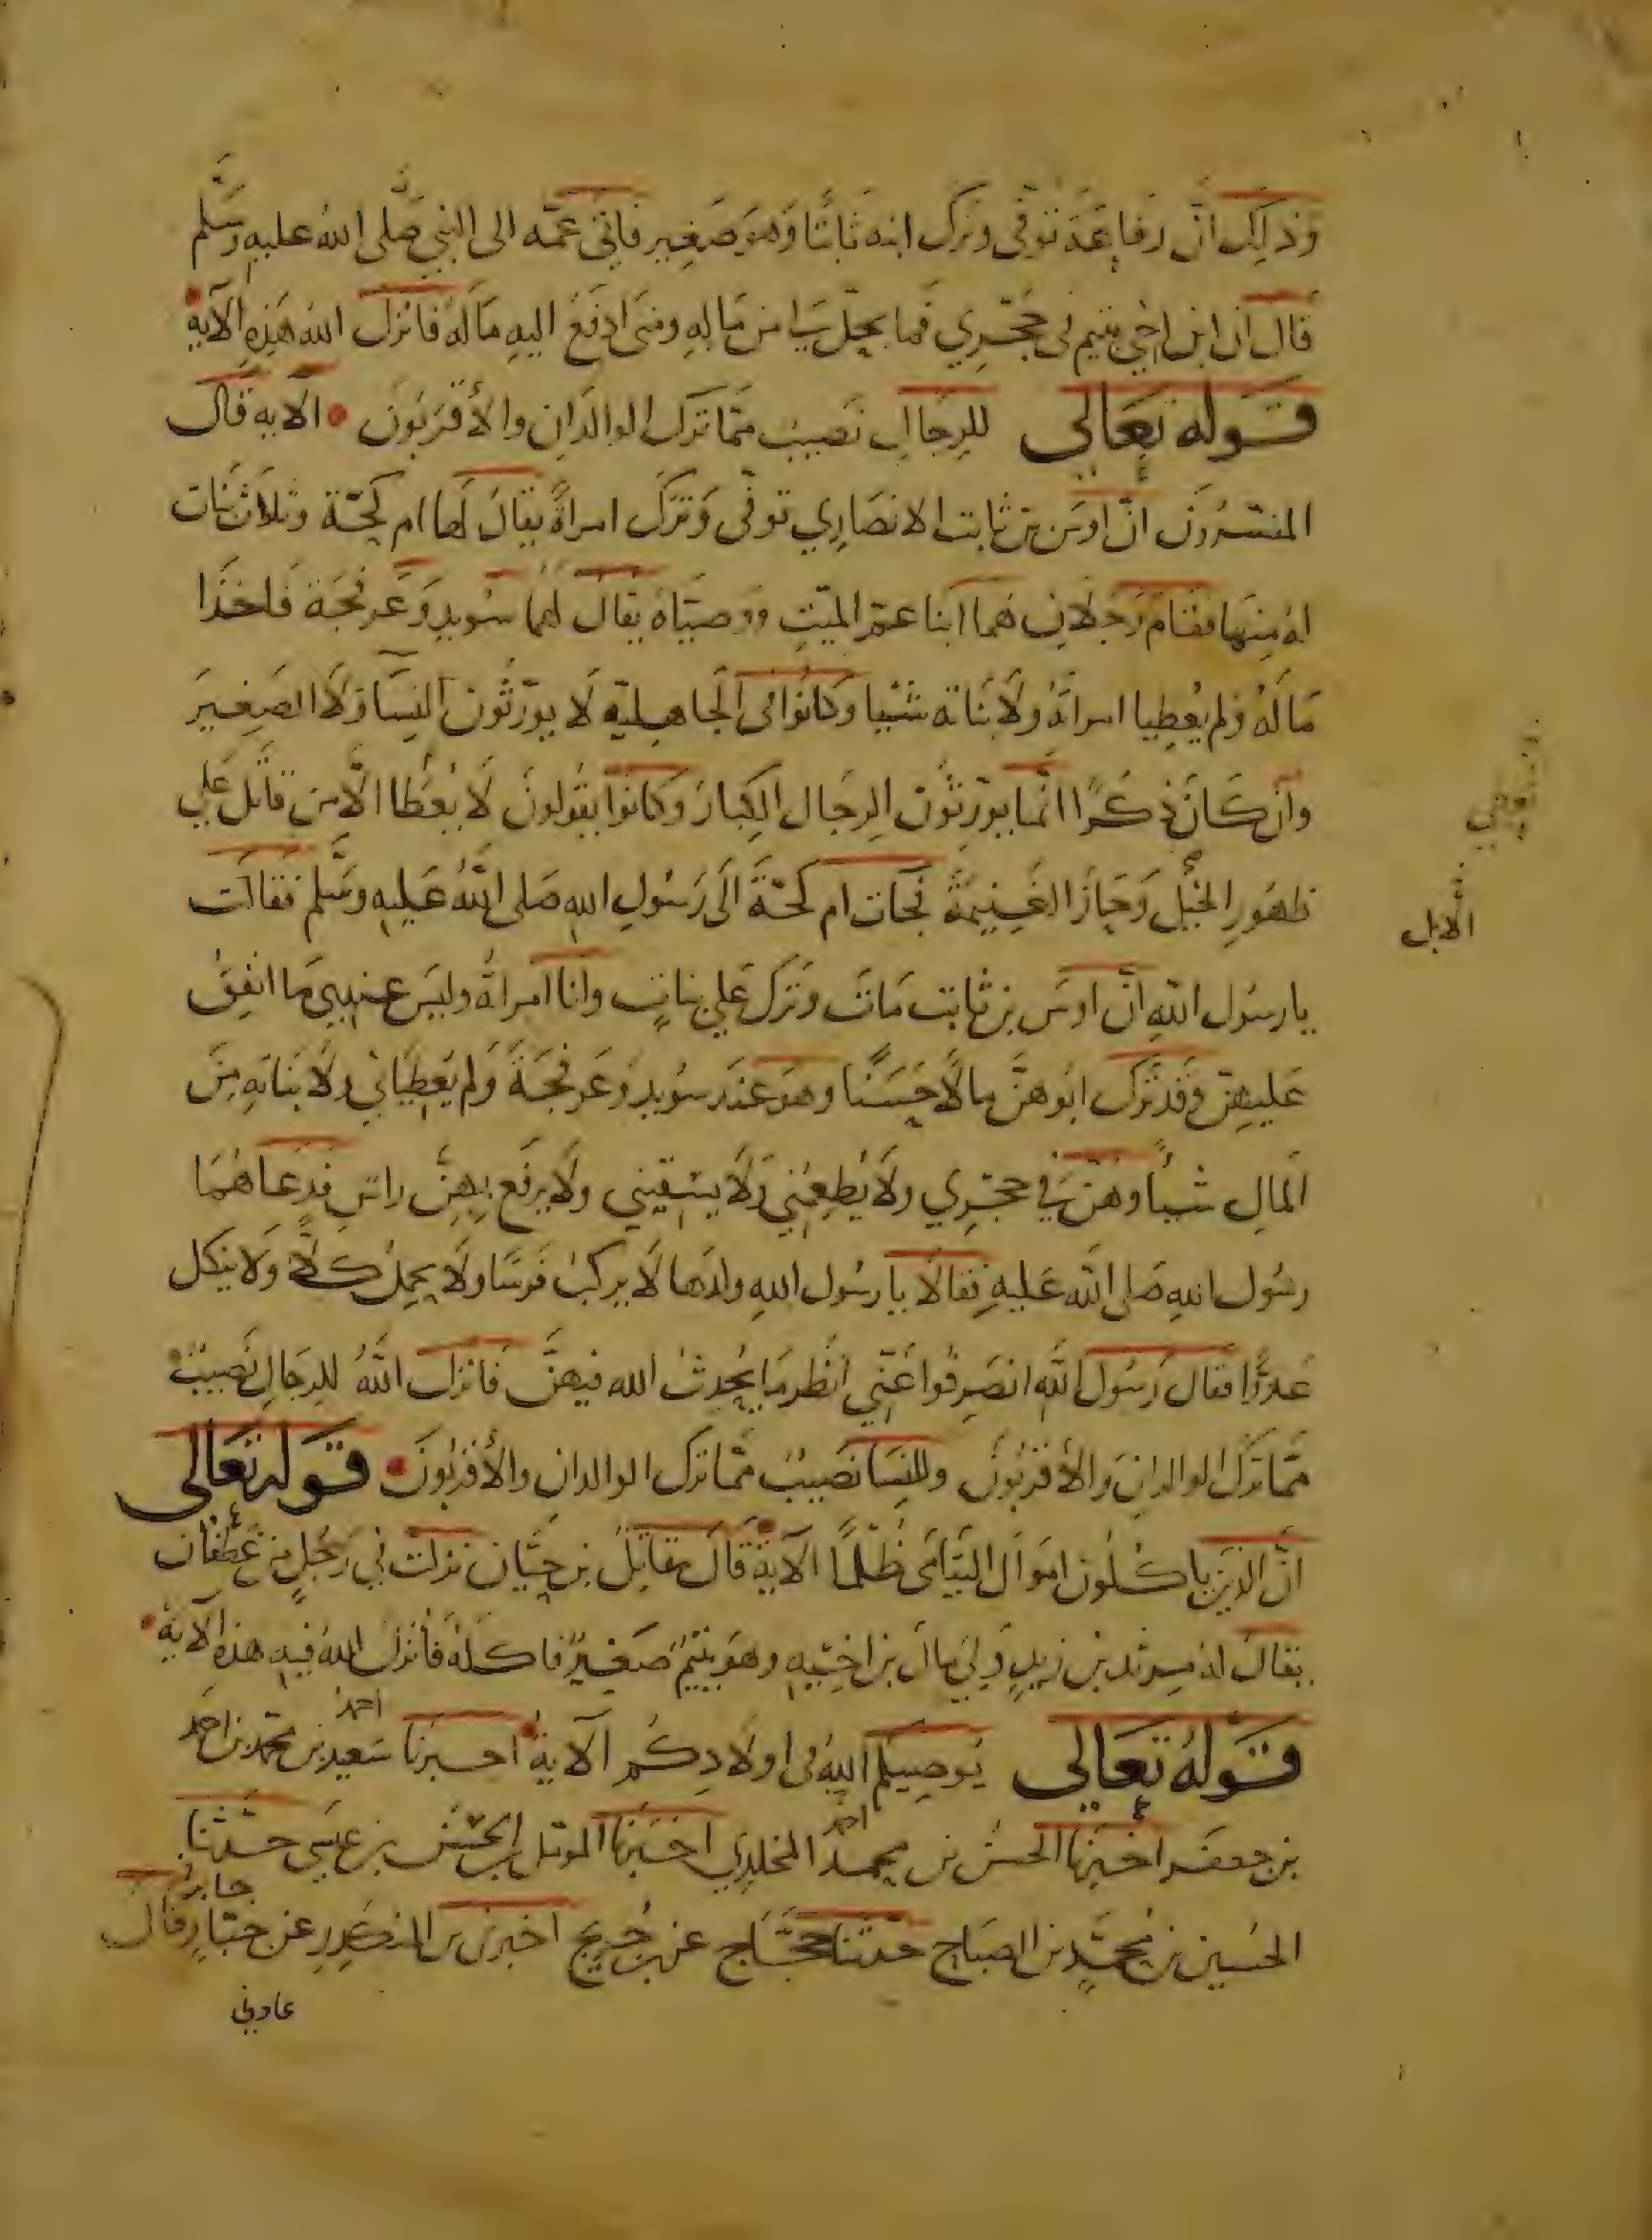 وذلك انّ رفاعة توفى وترك ابنه ثابتا وهو صغير فاتى عمّه الى النبي صلى الله عليه وسلم
قال ان ابن اخي يتيم فى حجري فما يحلّ لى من ماله ومتى ادفع اليه ماله فانزل الله هذه الآية
قوله تعالى للرجال نصيب ممّا ترك الوالدان والأقربون الآيه قال
المفسرون انّ اوس بن ثابت الانصاري توفّى وترك امراة يقال لها ام كحّة وثلاث بنات
له منها فقام رجلان هما ابنا عمّ الميّت ووصيّاه يقال لهما سويد وعرفجة فاخذا
ماله ولم يعطيا امراته ولا بناته شيئا وكانوا فى الجاهلية لا يورّثون النسآ ولا الصغير
وان كان ذكرا انّما يورّثون الرجال الكبار وكانوا يقولون لا يعطا الّا من قاتل علي
ظهور الخيل وحاز الغنيمة فجات ام كحّة الى رسول الله صلى الله عليه وسلم فقالت
يا رسول الله انّ اوس بن ثابت مات وترك علي بنات وانا امراة وليس عندي ما انفق
عليهنّ وقد ترك ابوهنّ مالا حسنا وهو عند سويد وعرفجة ولم يعطياني ولا بناته من
المال شيأ وهنّ في حجري ولا يطعمني ولا يسقيني ولا يرفع بهنّ راس فدعاهما
رسول الله صلى الله عليه فقالا يا رسول الله ولدها لا يركب فرسا ولا يحمل كلّا ولا ينكل
عدوّا فقال رسول الله انصرفوا عنّي انظر ما يحدث الله فيهنّ فانزل الله للرجال نصيب
ممّا ترك الوالدان والأقربون وللنسا نصيب ممّا ترك الوالدان والأقربون قوله تعالى
انّ الذين ياكلون اموال اليتامى ظلما الآية قال مقاتل بن حيّان نزلت في رجل من غطفان
يقال له مرثد بن زيد ولي مال بن اخيه وهو يتيم صغير فاكله فانزل الله فيه هذه الآية
قوله تعالي يوصيكم الله فى اولادكم الآية اخبرنا احمد سعيد بن محمّد بن احمد
بن جعفر اخبرنا الحسن بن احمد محمد المخلدي اخبرنا المومل بن الحسن بن عيسى حدّثنا
الحسين بن محمّد بن الصباح حدثنا حجّاج عن بن جريج اخبرنى بن المنكدر عن جابر قال
جابر
عادني
الابل